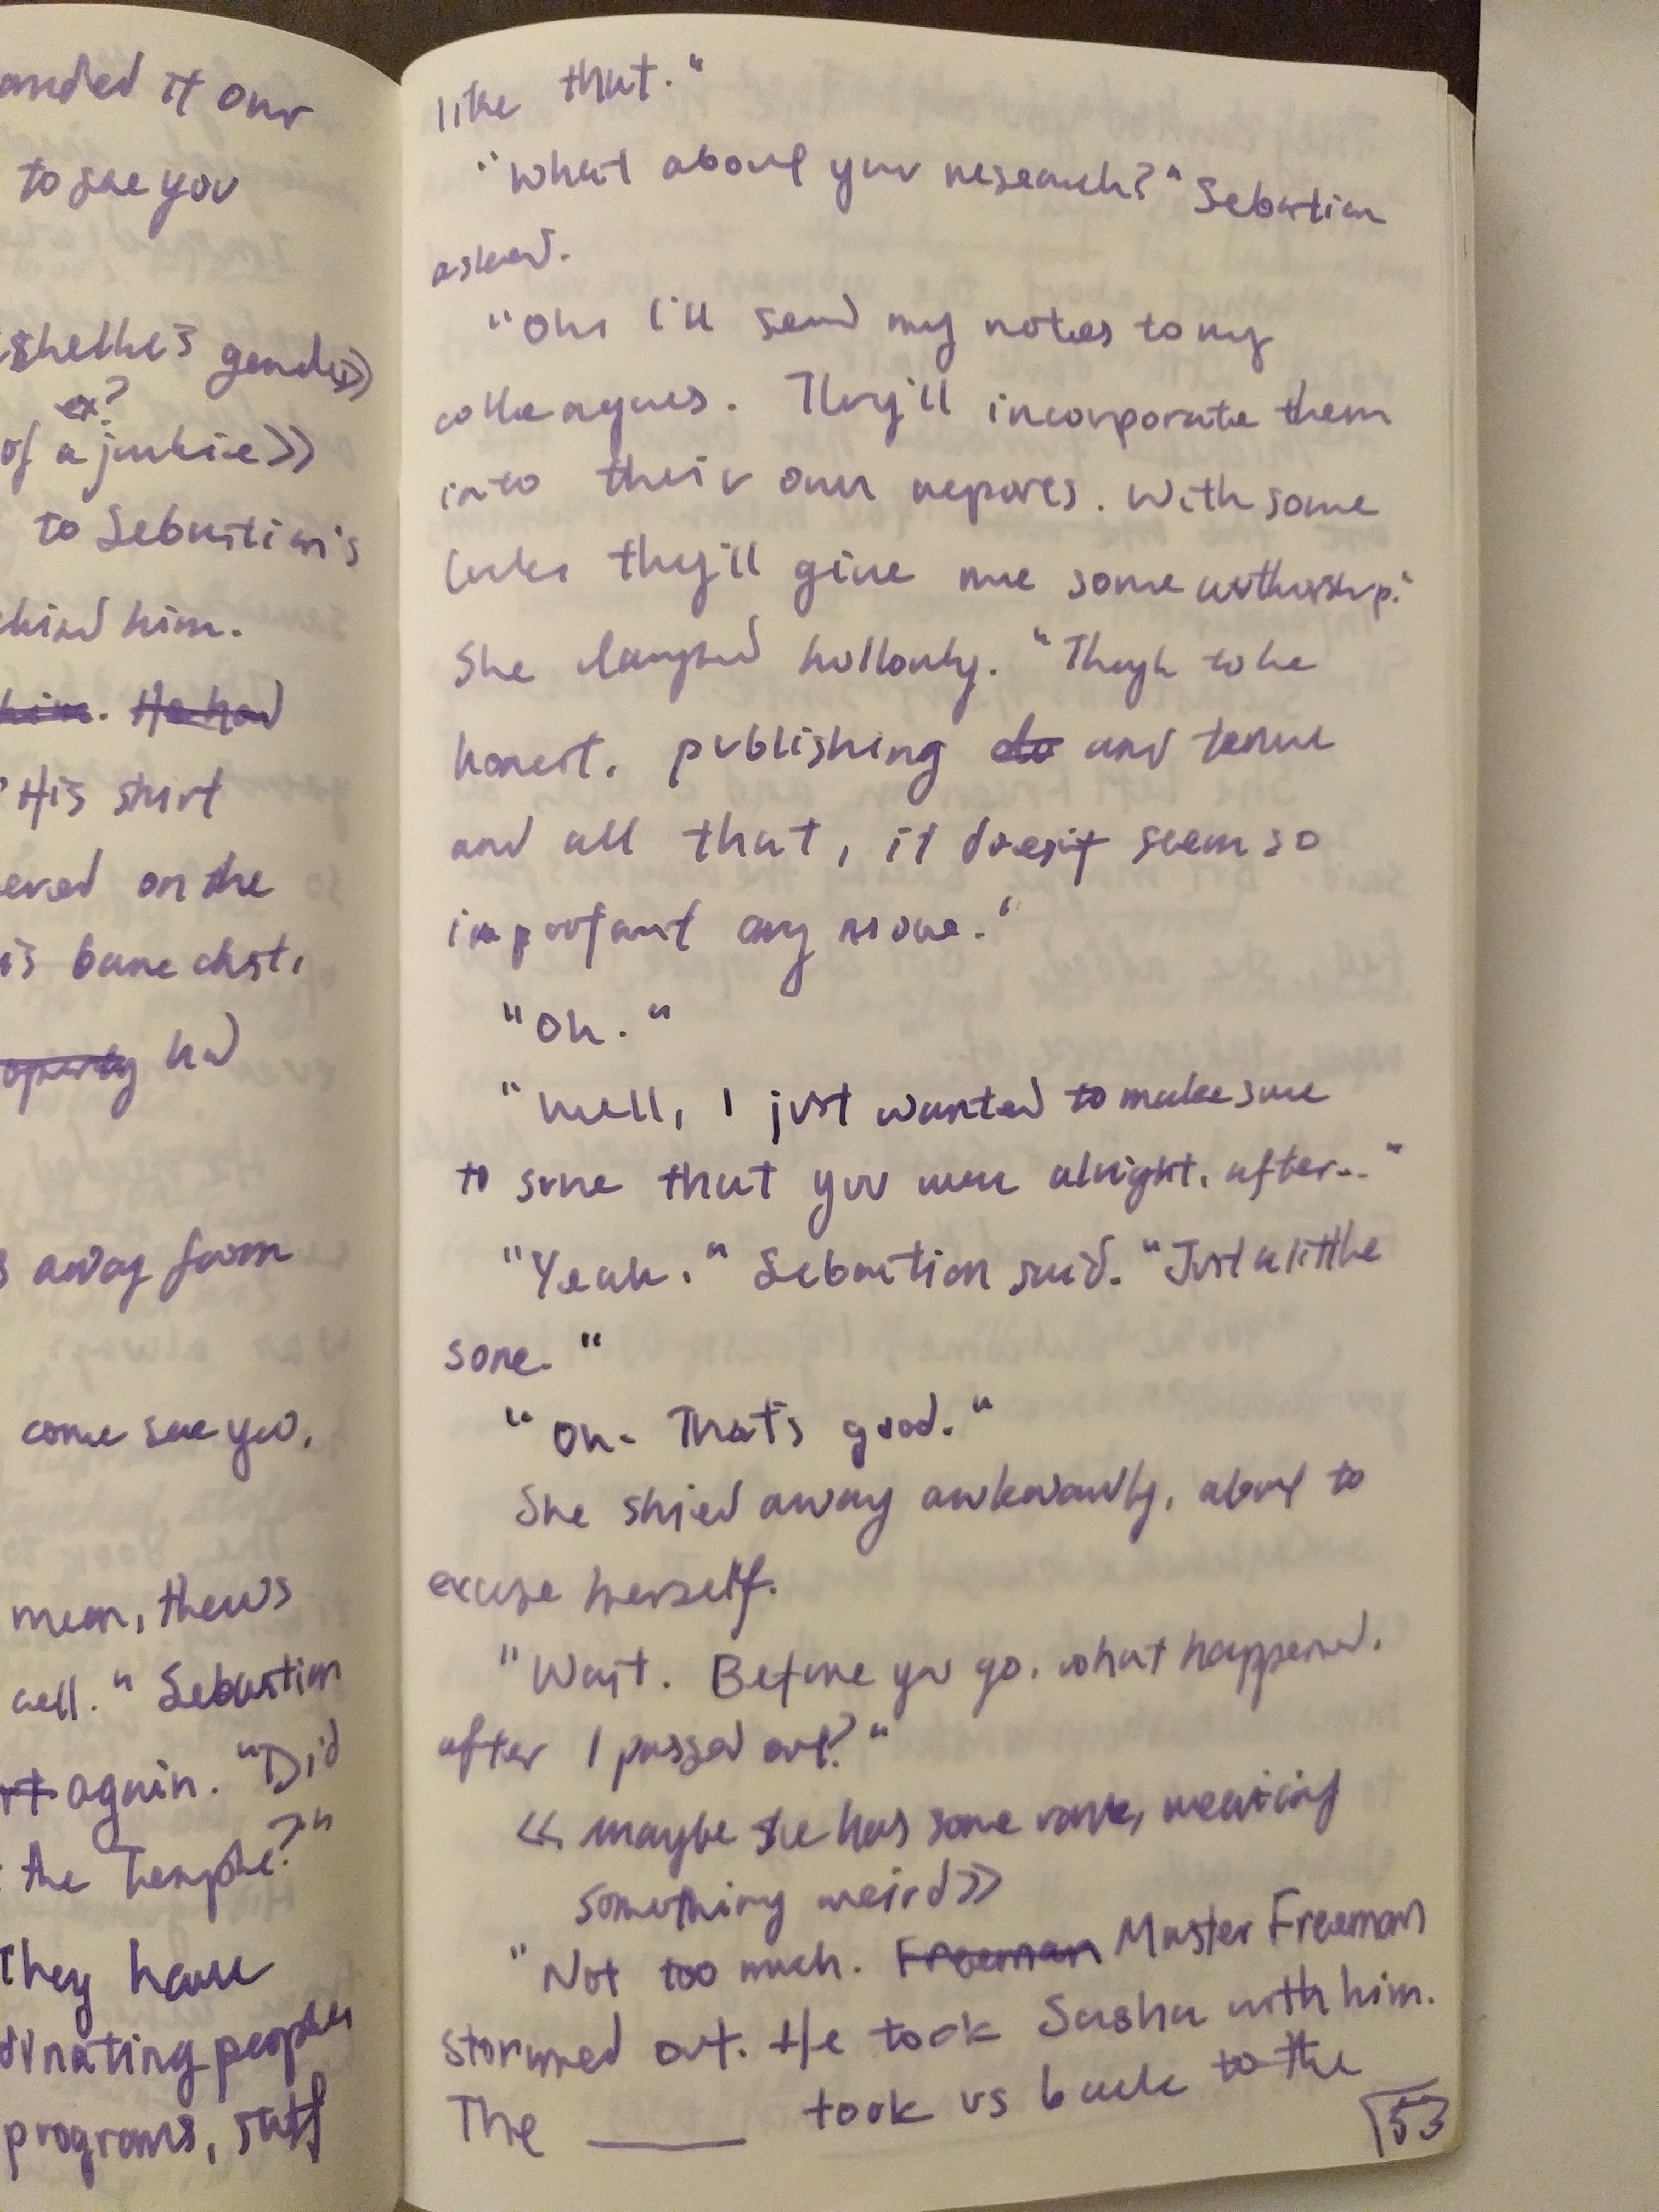 anded it over
to see you
gender>>
ex?
of a junkie>>
to Sebastian's
ehind him.
him. He had
His shirt
ered on the
is bare chest,
had
s away form
come see you,
mean, there's
well." Sebastian
again. "Did
the temple?"
They have
dinating people
programs, stuff
like that."
"What about your research?" Sebastian
asked.
"Oh, I'll send my notes to my
colleagues. They'll incorporate them
into their own reports. With some
luck, they'll give me some authorship."
She laughed hollowly. "Though to be
honest, publishing and tenure
and all that, it doesn't seem so
important any more."
"Oh."
"Well, I just wanted to make sure
to sure that you were alright, after..."
"Yeah," Sebastian said. "Just a little
sore."
"Oh. That's good."
She shied away awkwardly, about to
excuse herself.
"Wait. Before you go, what happened,
after I passed out?"
<< maybe she has some rank, wearing
something weird>>
"Not too much. Freeman Master Freeman
stormed out. He took Sasha with him.
The ____ took us back to the
53